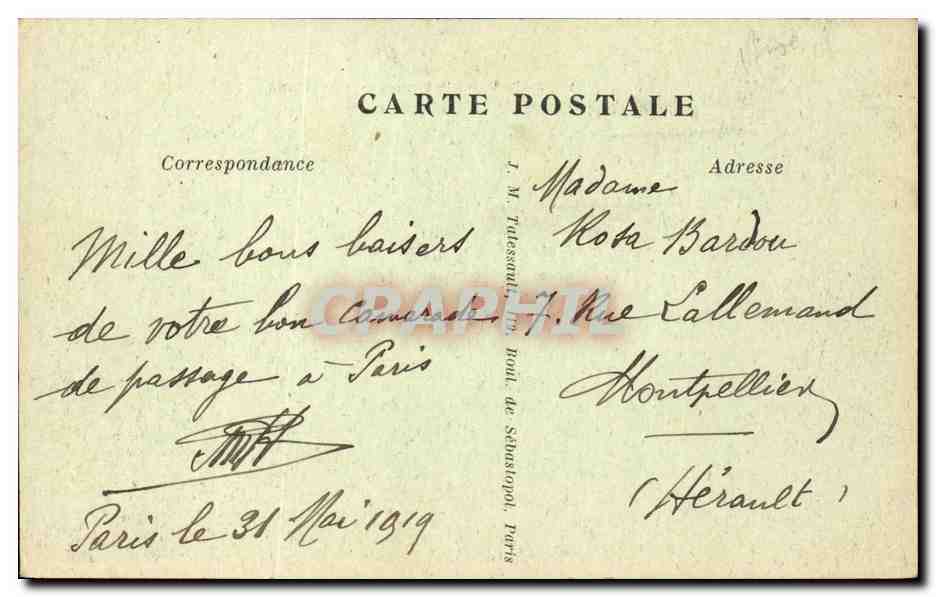 CARTE POSTALE
Correspondance
Mille bons baisers
de votre bon camarade
de passage à Paris
Paris le 31 Mai 1919
J. M. Boul. de Sébastopol, Paris
Adresse
Madame
Rosa Bardou
7. Rue Lallemand
Montpellier
(Hérault)
CRAPHIL